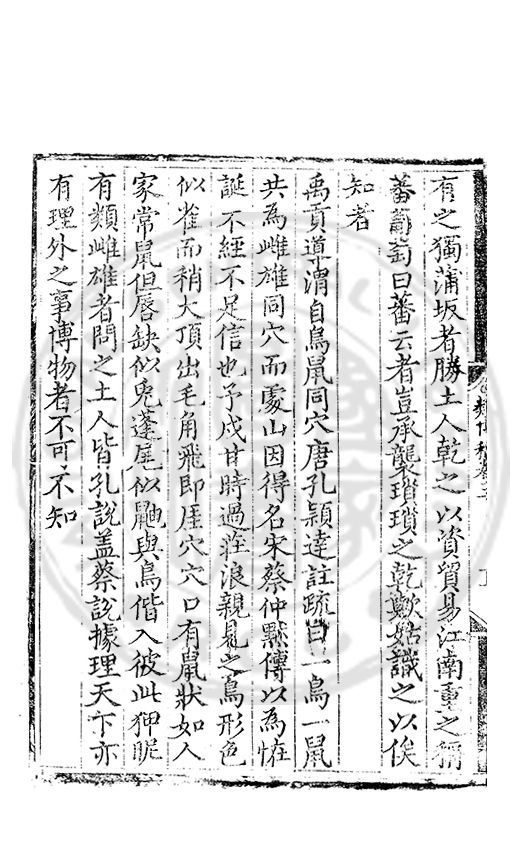 有之獨蒲坂者勝土人乾之以資貿易江南重之稱
蕃蔔萄曰蕃云者豈承襲瑣瑣之乾歟姑識之以俟
知者
禹貢導渭自鳥鼠同穴唐孔穎達註疏曰一鳥一鼠
共為雌雄同穴而處山因得名宋蔡仲默傳以為恠
誕不經不足信也予戍甘時過莊浪親見之鳥形色
似雀而稍大頂出毛角飛即厓穴穴口有鼠狀如人
家常鼠但唇缺似兎蓬尾似鼬與鳥偕入彼此狎昵
有類雌雄者問之土人皆孔說盖蔡說據理天下亦
有理外之事博物者不可不知